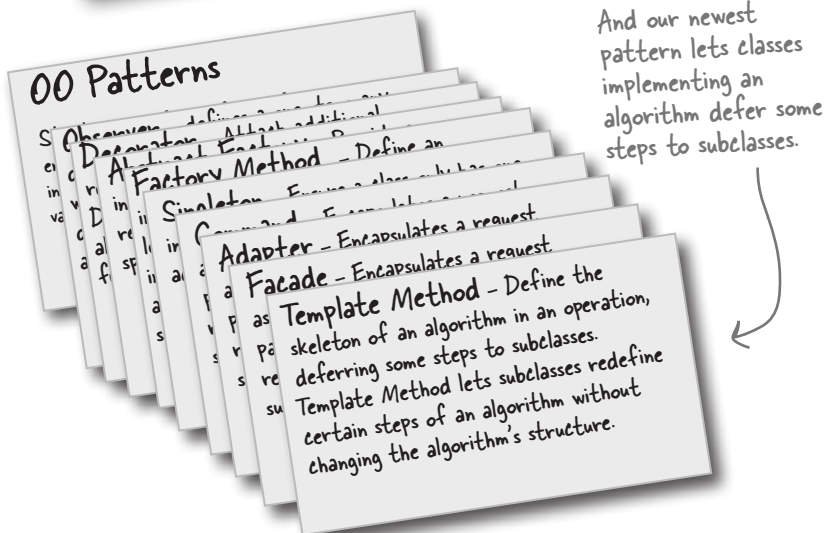 OO Patterns
Observer - defines a one to many
Decorator - Attach additional
Abstract Factory - Provide
Factory Method - Define an
Singleton - Ensure a class only has one
Command - Encapsulates a request
Adapter - Encapsulates a request
Facade - Encapsulates a request
Template Method - Define the
skeleton of an algorithm in an operation,
deferring some steps to subclasses.
Template Method lets subclasses redefine
certain steps of an algorithm without
changing the algorithm's structure.
And our newest
pattern lets classes
implementing an
algorithm defer some
steps to subclasses.